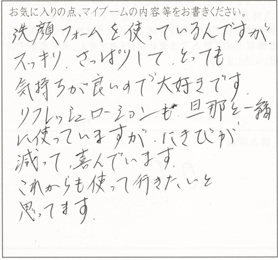 お気に入りの点、マイブームの内容等をお書きください。
洗顔フォームを使っているんですが
スッキリ、さっぱりして、とっても
気持ちが良いので大好きです。
リフレッシュローションも旦那と一緒
に使っていますが、にきびが
減って、喜んでいます。
これからも使って行きたいと
思ってます。